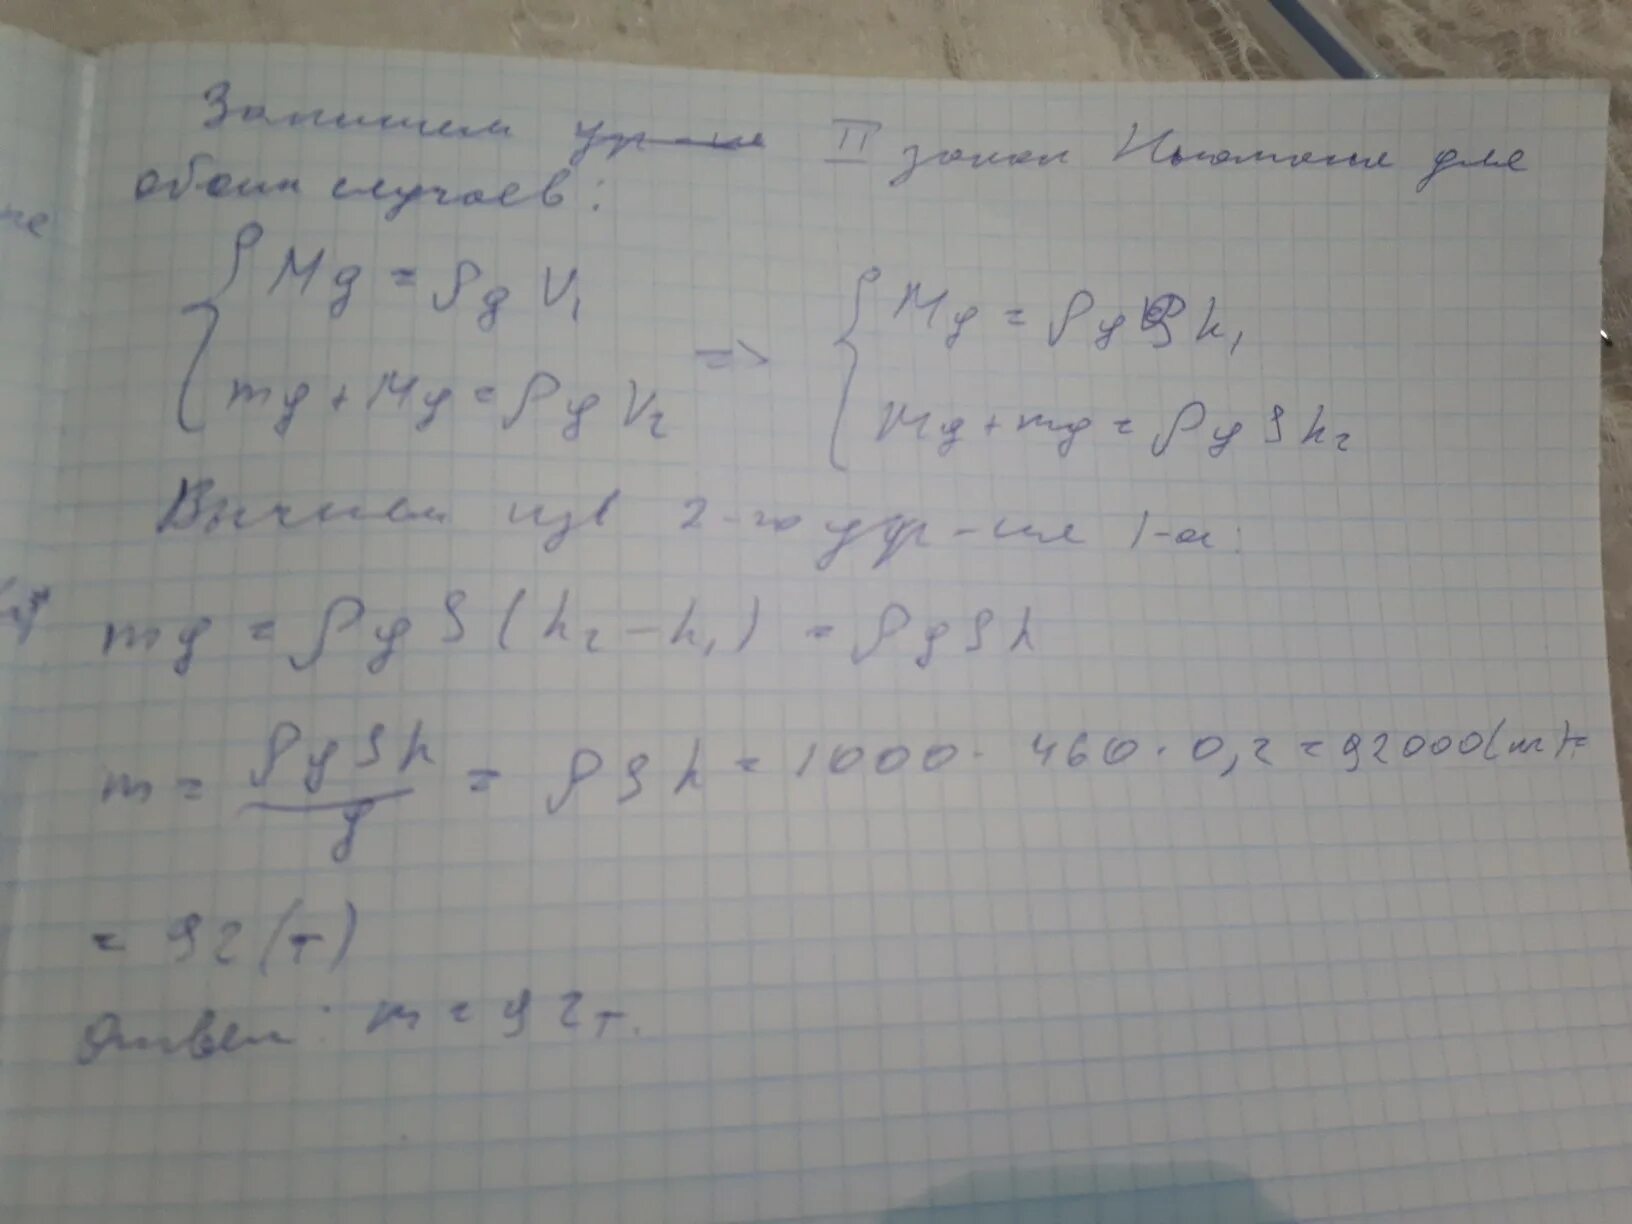 Запишем ур-ние II закон Ньютона для
обоих случаев:
{ Mg = ρgV₁
{ mg + Mg = ρgV₂
=>
{ Mg = ρgSh₁
{ Mg + mg = ρgSh₂
Вычтем из 2-го ур-ния 1-ое:
mg = ρgS(h₂ - h₁) = ρgSh
m = ρgSh/g = ρSh = 1000 · 460 · 0,2 = 92000(кг) =
= 92(т)
Ответ: m = 92т.